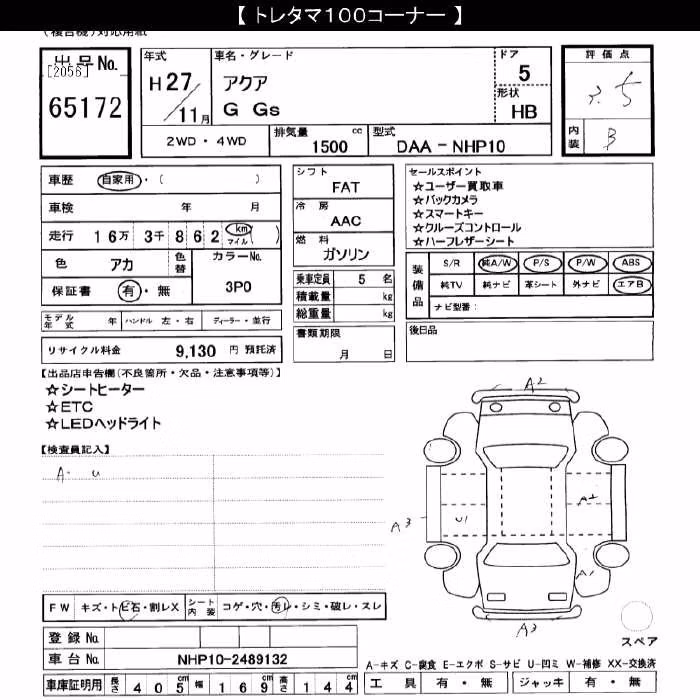 【 トレタマ100コーナー 】
(複合機)対応用紙
出品No.
[2056]
65172
年式
H27/11月
車名・グレード
アクア
G Gs
ドア
5
形状
HB
2WD・4WD
排気量 1500 cc
型式 DAA-NHP10
評価点
内装 B
車歴 自家用・( )
車検 年 月
走行 16万 3千 862 km マイル ( )
色 アカ 色替
カラーNo.
3P0
保証書 有・無
モデル年式 年 ハンドル 左・右 ディーラー・並行
リサイクル料金 9,130 円 預託済
シフト
FAT
冷房
AAC
燃料
ガソリン
乗車定員 5 名
積載量 kg
総重量 kg
書類期限
月 日
セールスポイント
☆ユーザー買取車
☆バックカメラ
☆スマートキー
☆クルーズコントロール
☆ハーフレザーシート
装備品
S/R 純A/W P/S P/W ABS
純TV 純ナビ 革シート 外ナビ エアB
ナビ型番:
後日品
【出品店申告欄(不良箇所・欠品・注意事項等)】
☆シートヒーター
☆ETC
☆LEDヘッドライト
【検査員記入】
A・U
A2
A3
U1
A2
A1
A3
スペア
FW キズ・トビ石・割レX
シート内装 コゲ・穴・汚レ・シミ・破レ・スレ
登録No.
車台No. NHP10-2489132
車庫証明用 長さ 405 cm 幅 169 cm 高さ 144 cm
A-キズ C-腐食 E-エクボ S-サビ U-凹ミ W-補修 XX-交換済
工具 有・無 ジャッキ 有・無